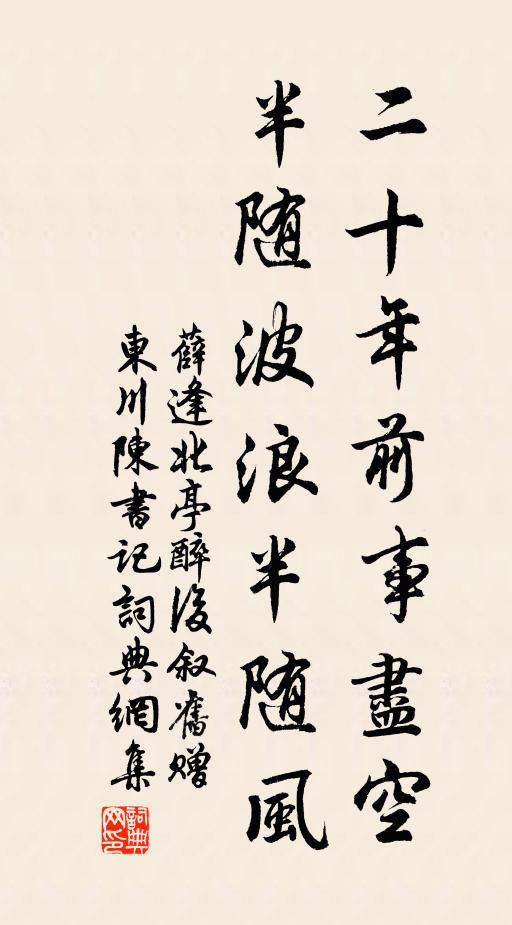 二十年前事盡空
半随波浪半随風
薛逢北亭醉後叙舊贈
東川陳書記詞典網集
詞典網印